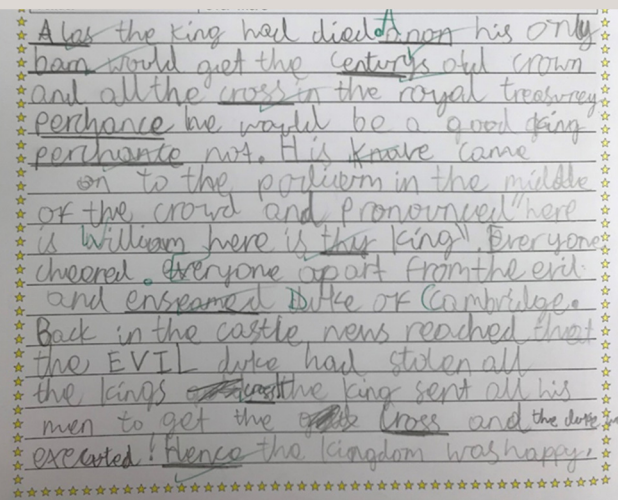 Alas the king had died Anon his only
barn would get the centurys old crown
and all the cross in the royal treasurey
perchance he would be a good king
perchance not. His knave came
on to the podium in the middle
of the crowd and pronounced "here
is William here is thy king". Everyone
cheered. Everyone apart from the evil
and enseamed Duke of Cambridge.
Back in the castle news reached that
the EVIL duke had stolen all
the kings the king sent all his
men to get the Cross and the duke
executed! Hence the kingdom was happy.